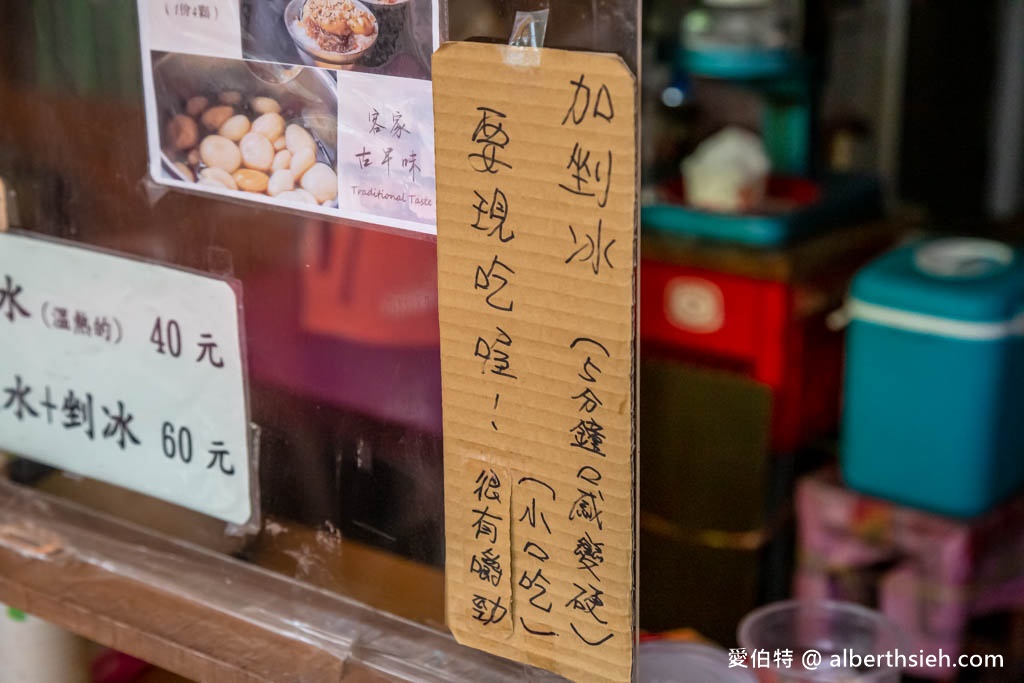 (1份4顆)
客家
古早味
Traditional Taste
水(溫熱的) 40元
水+剉冰 60元
加剉冰(5分鐘口感變硬)
要現吃喔!!
(小口吃)
很有嚼勁
愛伯特 @ alberthsieh.com